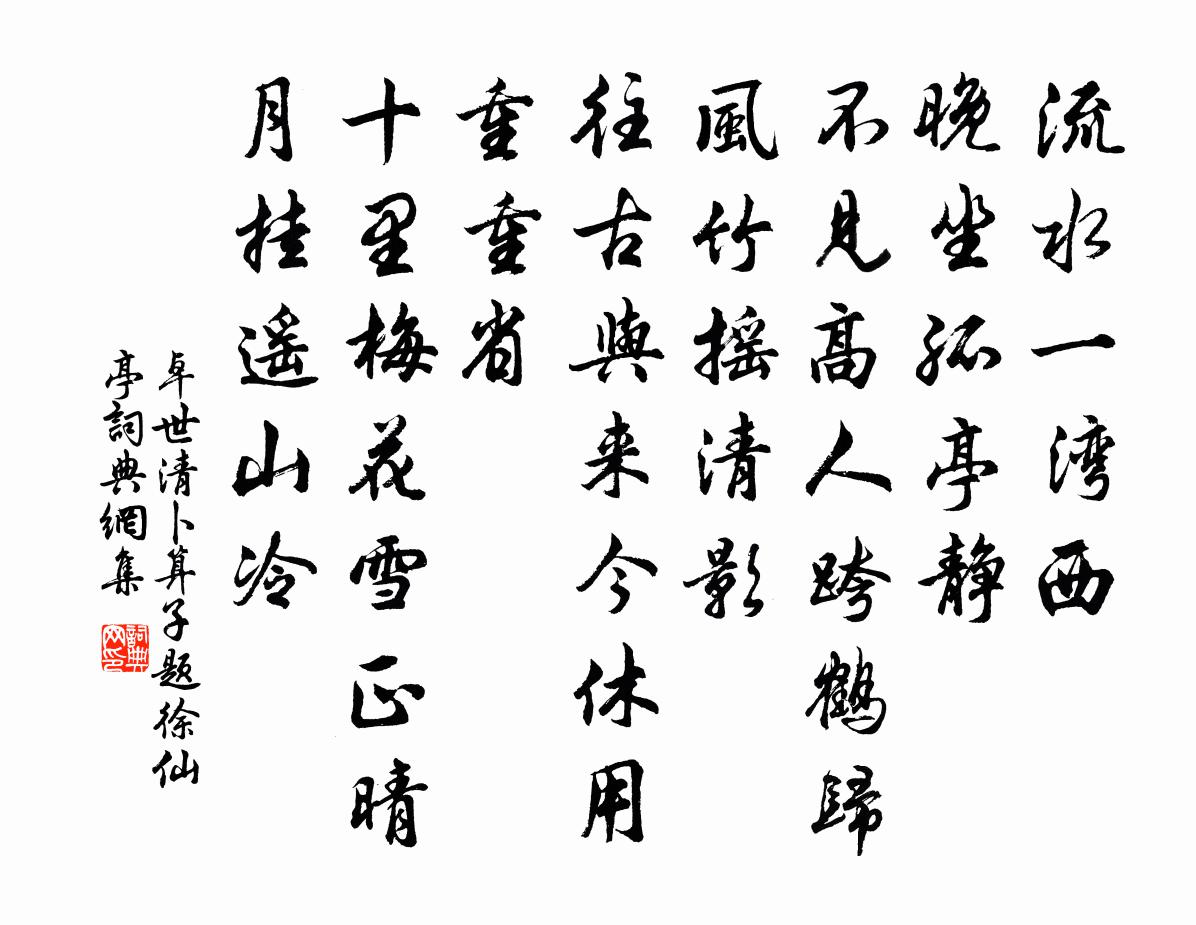 流水一湾西
晚坐孤亭静
不見高人跨鶴歸
風竹摇清影
往古與来今休用
重重省
十里梅花雪正晴
月挂遥山冷
卓世清卜算子题徐仙
亭詞典網集
詞典网印